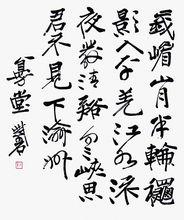 峩嵋山月半輪龝
影入平羌江水流
夜發清谿向三峽思
君不見下渝州